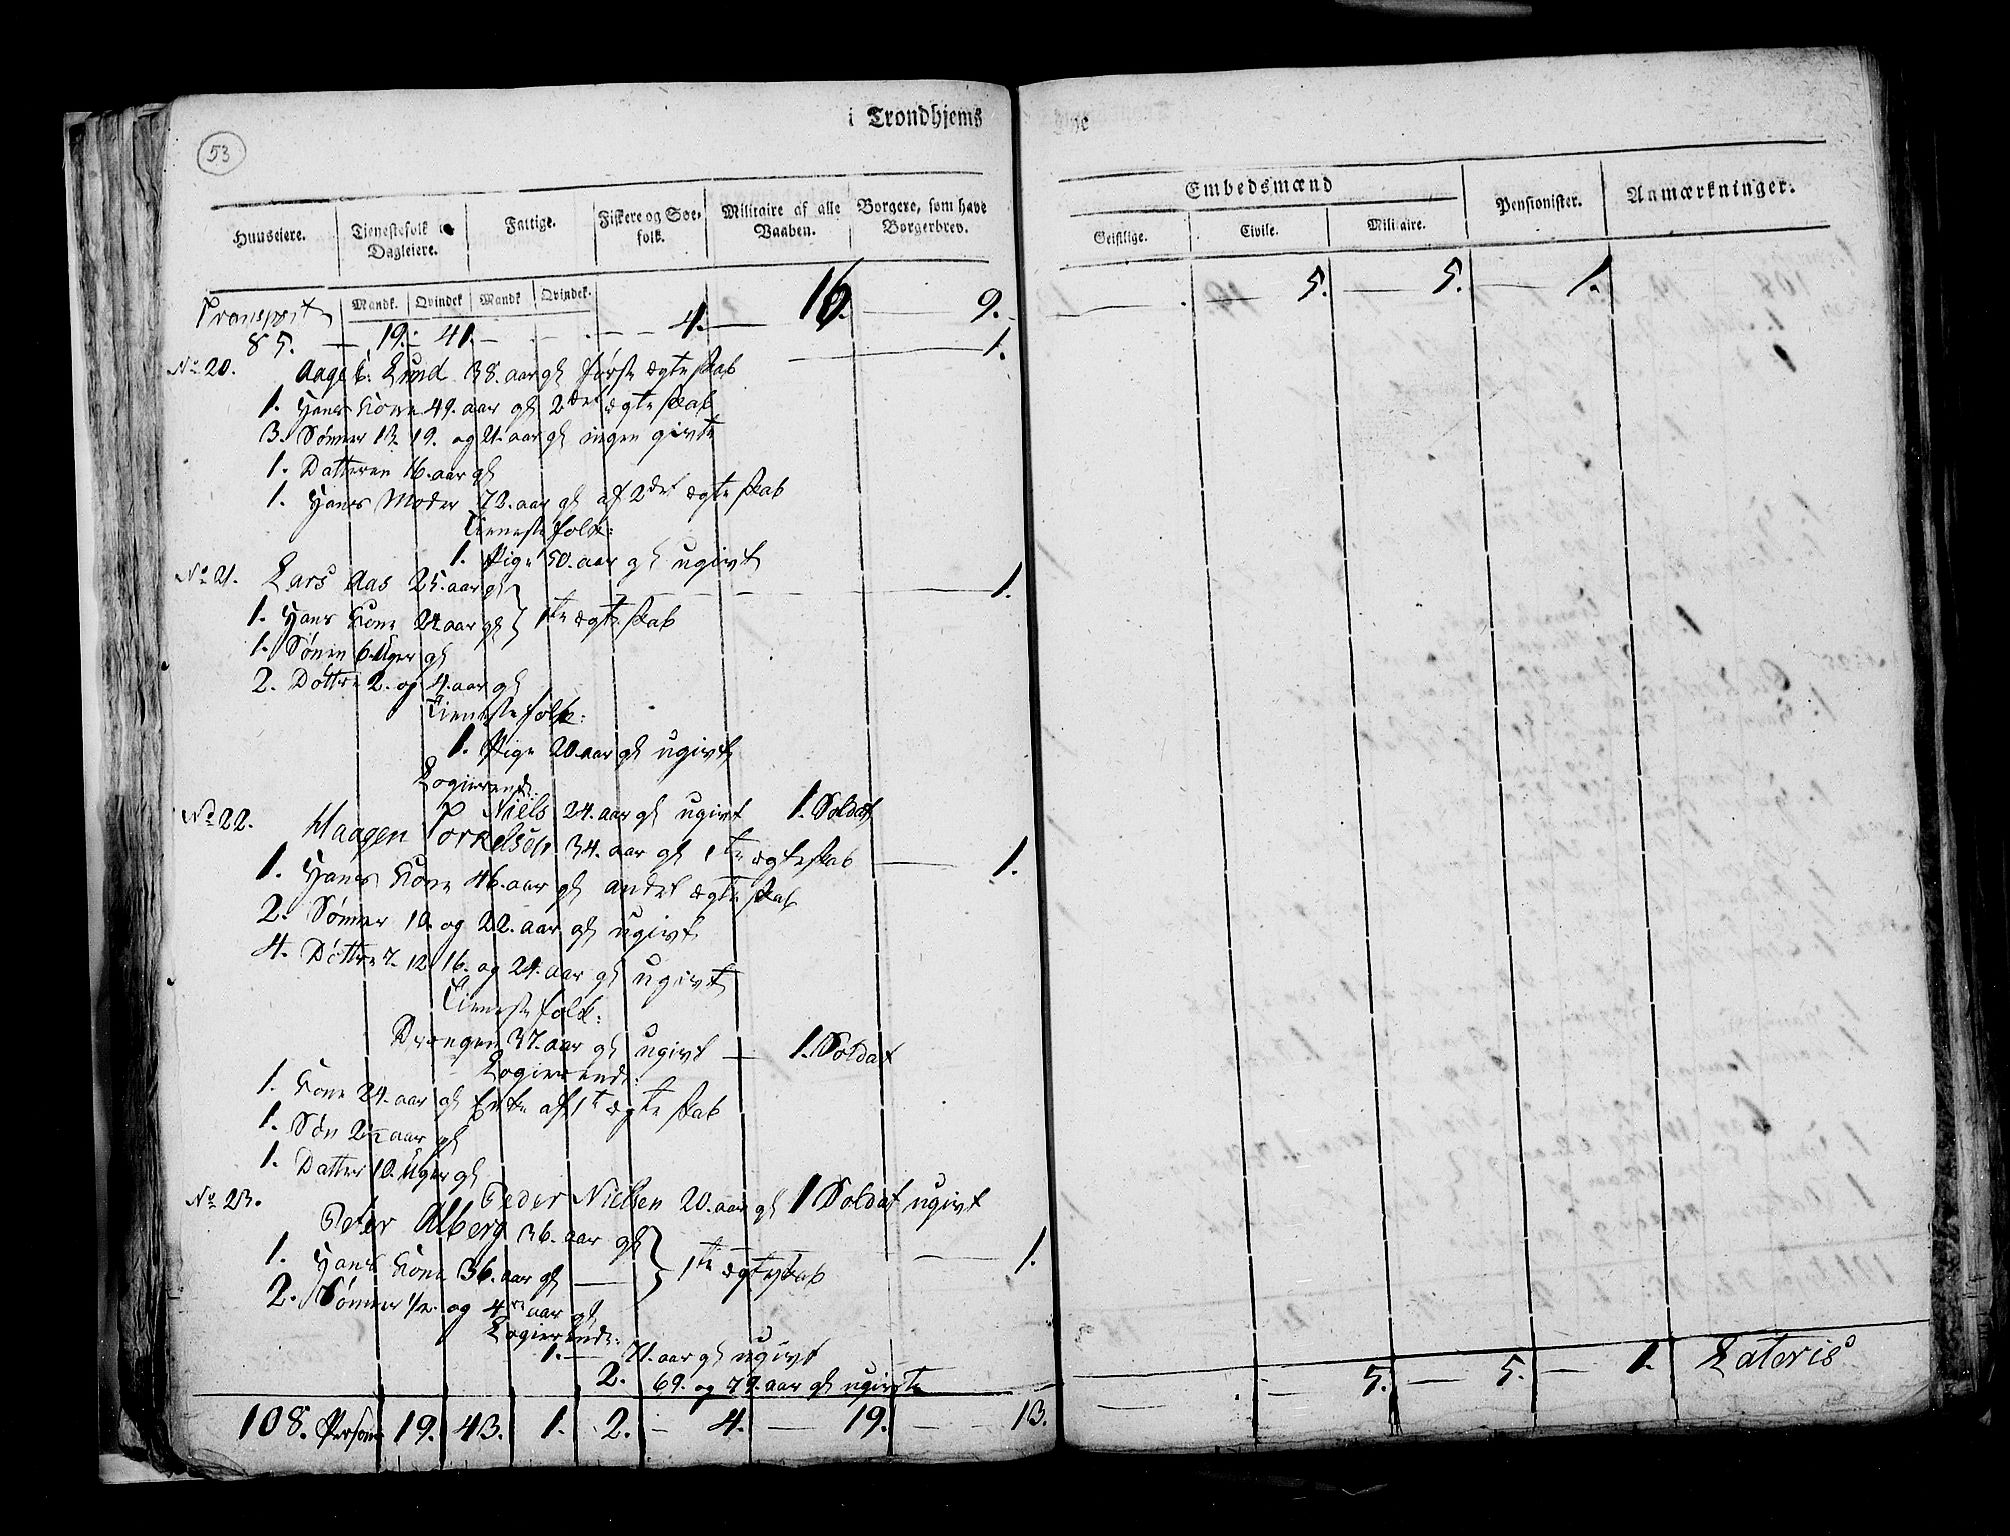 53
i Trondhjems
Huuseiere. Tienestefolk Dagleiere. Fattige. Fiskere og Søefolk. Militaire af alle Vaaben. Borgere, som have Borgerbrev. Embedsmænd Pensionister. Anmærkninger.
Geistlige. Civile. Militaire.
Mandk. Qvindek Mandk Qvindek.
Transport
85. 19. 41. 4. 16. 9. 5. 5. 1.
No 20. Aage Lund 38. aar gl første ægteskab 1.
1. Hans Kone 49. aar gl 2det ægteskab
3. Sønner 13. 19. og 21. aar gl ingen givte
1. Datteren 16. aar gl
1. Hans Moder 72. aar gl af 2det ægteskab
Tienestefolk:
1. Pige 50. aar gl ugivt
No 21. Lars Aas 25. aar gl 1.
1. Hans Kone 24 aar gl } 1te ægteskab
1. Sønen 6. Uger gl
2. Døttre 2. og 4. aar gl
Tienestefolk:
1. Pige 20. aar gl ugivt
Logierende:
Niels 24. aar gl ugivt 1. Soldat
No 22. Haagen Torkelsen 34. aar gl 1te ægteskab 1.
1. Hans Kone 46. aar gl andet ægteskab
2. Sønner 10. og 22. aar gl ugivt
4. Døttre 7. 12. 16. og 24. aar gl ugivt
Tienestefolk:
Drengen 37. aar gl ugivt 1. Soldat
Logierende:
1. Kone 24. aar gl Enke af 1te ægteskab
1. Søn 2 1/2 aar gl
1. Datter 10. Uger gl
Peder Nielsen 20. aar gl 1 Soldat ugivt
No 23. Peter Alberg 36. aar gl 1.
1. Hans Kone 36. aar gl } 1te ægteskab
2. Sønner 1/2. og 4 aar gl
Logierende:
1. 71. aar gl ugivt
2. 69. og 79. aar gl ugivte
108. Person 19. 43. 1. 2. 4. 19. 13. 5. 5. 1. Lateris